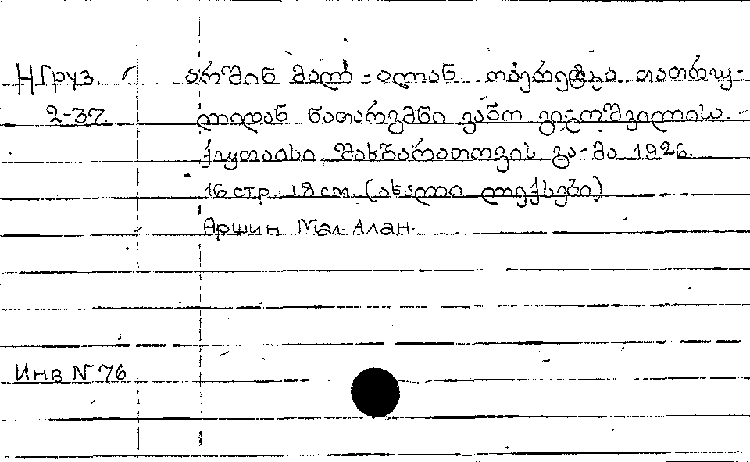 НГруз. არშინ მალ-ალან ოპერეტკა თათრუ-
2-37. ლიდან ნათარგმნი ვანო გიგოშვილისა. -
ქუთაისი, მახარათოვის გა-მა 1926.
16 стр. 18 см. (ახალი ლექსები)
Аршин Мал Алан.
Инв N 76